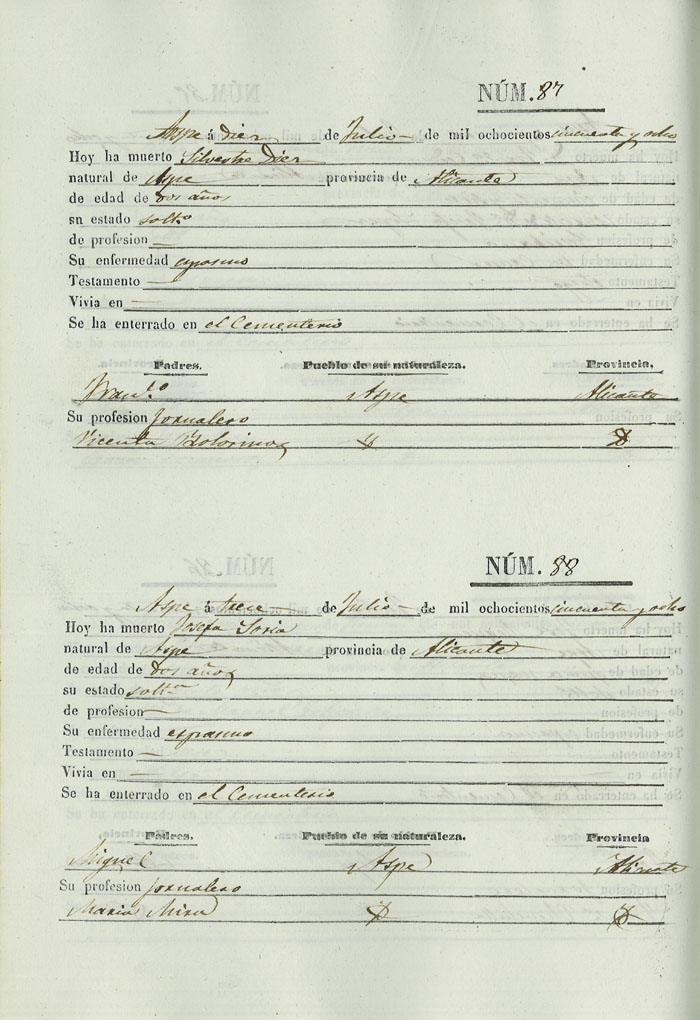 NÚM. 87
Aspe á Diez de Julio de mil ochocientos cincuenta y ocho
Hoy ha muerto Silvestre Diez
natural de Aspe provincia de Alicante
de edad de dos años
su estado solto
de profesion —
Su enfermedad espasmo
Testamento —
Vivia en —
Se ha enterrado en el Cementerio
Padres. Pueblo de su naturaleza. Provincia.
Franco Aspe Alicante
Su profesion jornalero
Vicenta
NÚM. 88
Aspe á trece de Julio de mil ochocientos cincuenta y ocho
Hoy ha muerto Josefa Soria
natural de Aspe provincia de Alicante
de edad de dos años
su estado solta
de profesion —
Su enfermedad espasmo
Testamento —
Vivia en —
Se ha enterrado en el Cementerio
Padres. Pueblo de su naturaleza. Provincia
Miguel Aspe Alicante
Su profesion jornalero
Maria Mira